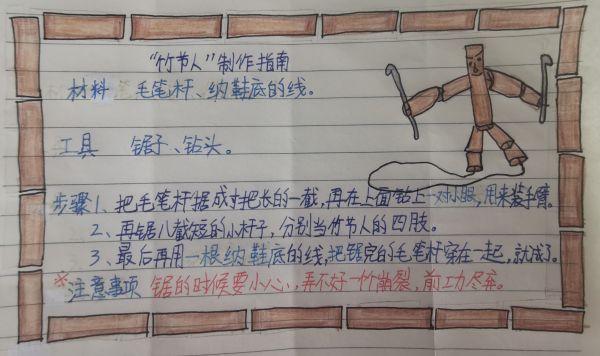 “竹节人”制作指南
材料 毛笔杆、纳鞋底的线。
工具 锯子、钻头。
步骤1、把毛笔杆锯成寸把长的一截,再在上面钻上一对小眼,用来装手臂。
2、再锯八截短的小杆子,分别当竹节人的四肢。
3、最后再用一根纳鞋底的线,把锯完的毛笔杆穿在一起,就成了。
※注意事项 锯的时候要小心,弄不好一个崩裂,前功尽弃。